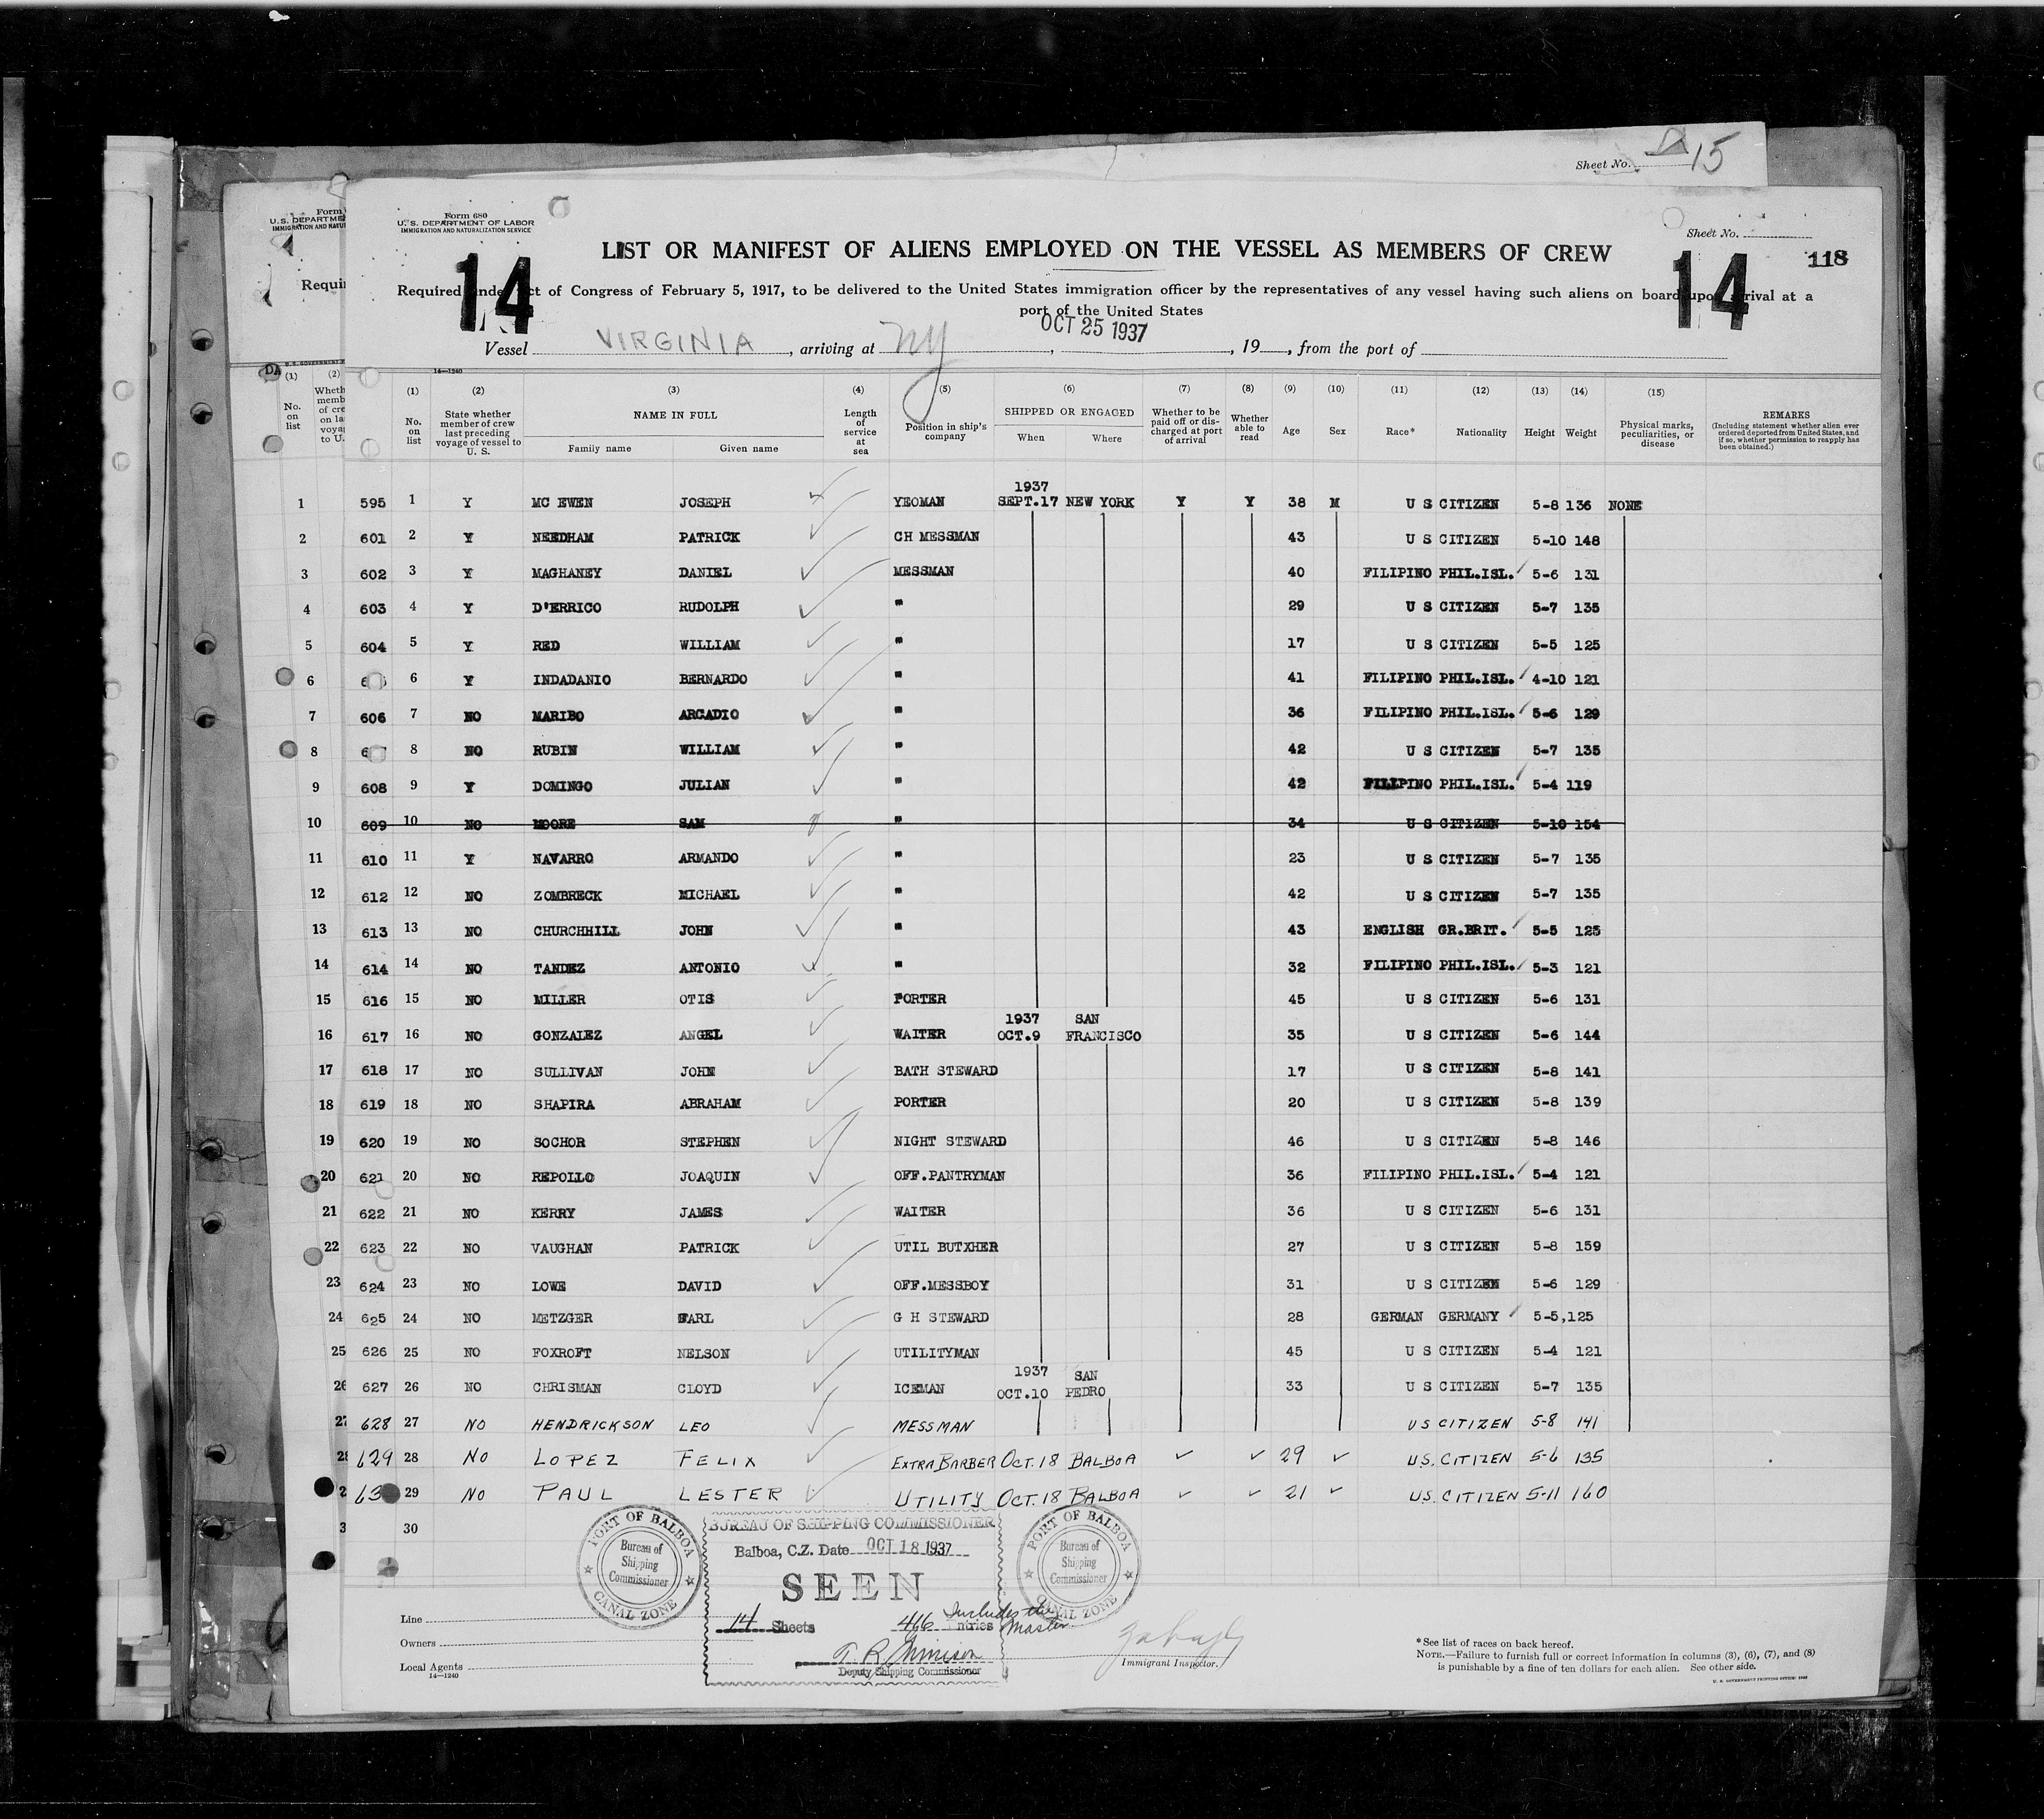 Sheet No. 15
Form
U.S. DEPARTME
IMMIGRATION AND NATUR
Requir
Form 680
U. S. DEPARTMENT OF LABOR
IMMIGRATION AND NATURALIZATION SERVICE
Sheet No.
LIST OR MANIFEST OF ALIENS EMPLOYED ON THE VESSEL AS MEMBERS OF CREW
118
14
14
Required under Act of Congress of February 5, 1917, to be delivered to the United States immigration officer by the representatives of any vessel having such aliens on board upon arrival at a
port of the United States
Vessel VIRGINIA, arriving at NY, OCT 25 1937, 19, from the port of
14—1240
(1) No. on list
(2) State whether member of crew last preceding voyage of vessel to U. S.
(3) NAME IN FULL Family name Given name
(4) Length of service at sea
(5) Position in ship's company
(6) SHIPPED OR ENGAGED When Where
(7) Whether to be paid off or discharged at port of arrival
(8) Whether able to read
(9) Age
(10) Sex
(11) Race*
(12) Nationality
(13) Height
(14) Weight
(15) Physical marks, peculiarities, or disease
REMARKS (Including statement whether alien ever ordered deported from United States, and if so, whether permission to reapply has been obtained.)
1937
1 595 1 Y MC EWEN JOSEPH YEOMAN SEPT.17 NEW YORK Y Y 38 M U S CITIZEN 5-8 136 NONE
2 601 2 Y NEEDHAM PATRICK CH MESSMAN 43 U S CITIZEN 5-10 148
3 602 3 Y MAGHANEY DANIEL MESSMAN 40 FILIPINO PHIL.ISL. 5-6 131
4 603 4 Y D'ERRICO RUDOLPH " 29 U S CITIZEN 5-7 135
5 604 5 Y RED WILLIAM " 17 U S CITIZEN 5-5 125
6 6 Y INDADANIO BERNARDO " 41 FILIPINO PHIL.ISL. 4-10 121
7 606 7 NO MARIBO ARCADIO " 36 FILIPINO PHIL.ISL. 5-6 129
8 8 NO RUBIN WILLIAM " 42 U S CITIZEN 5-7 135
9 608 9 Y DOMINGO JULIAN " 42 FILIPINO PHIL.ISL. 5-4 119
10 609 10 NO MOORE SAM " 34 U S CITIZEN 5-10 154
11 610 11 Y NAVARRO ARMANDO " 23 U S CITIZEN 5-7 135
12 612 12 NO ZOMBRECK MICHAEL " 42 U S CITIZEN 5-7 135
13 613 13 NO CHURCHHILL JOHN " 43 ENGLISH GR.BRIT. 5-5 125
14 614 14 NO TANDEZ ANTONIO " 32 FILIPINO PHIL.ISL. 5-3 121
15 616 15 NO MILLER OTIS PORTER 45 U S CITIZEN 5-6 131
1937 SAN
16 617 16 NO GONZALEZ ANGEL WAITER OCT.9 FRANCISCO 35 U S CITIZEN 5-6 144
17 618 17 NO SULLIVAN JOHN BATH STEWARD 17 U S CITIZEN 5-8 141
18 619 18 NO SHAPIRA ABRAHAM PORTER 20 U S CITIZEN 5-8 139
19 620 19 NO SOCHOR STEPHEN NIGHT STEWARD 46 U S CITIZEN 5-8 146
20 621 20 NO REPOLLO JOAQUIN OFF.PANTRYMAN 36 FILIPINO PHIL.ISL. 5-4 121
21 622 21 NO KERRY JAMES WAITER 36 U S CITIZEN 5-6 131
22 623 22 NO VAUGHAN PATRICK UTIL BUTXHER 27 U S CITIZEN 5-8 159
23 624 23 NO LOWE DAVID OFF.MESSBOY 31 U S CITIZEN 5-6 129
24 625 24 NO METZGER KARL G H STEWARD 28 GERMAN GERMANY 5-5,125
25 626 25 NO FOXROFT NELSON UTILITYMAN 45 U S CITIZEN 5-4 121
1937 SAN
26 627 26 NO CHRISMAN CLOYD ICEMAN OCT.10 PEDRO 33 U S CITIZEN 5-7 135
27 628 27 NO HENDRICKSON LEO MESSMAN US CITIZEN 5-8 141
28 629 28 NO LOPEZ FELIX EXTRA BARBER OCT. 18 BALBOA 29 U.S. CITIZEN 5-6 135
2 63 29 NO PAUL LESTER UTILITY OCT. 18 BALBOA 21 U.S. CITIZEN 5-11 160
3 30
PORT OF BALBOA CANAL ZONE
Bureau of Shipping Commissioner
BUREAU OF SHIPPING COMMISSIONER
Balboa, C.Z. Date OCT 18 1937
SEEN
14 Sheets 466 Entries Includes the Master
Deputy Shipping Commissioner
PORT OF BALBOA CANAL ZONE
Bureau of Shipping Commissioner
Line
Owners
Local Agents
14—1240
Immigrant Inspector.
*See list of races on back hereof.
NOTE.—Failure to furnish full or correct information in columns (3), (6), (7), and (8)
is punishable by a fine of ten dollars for each alien. See other side.
U. S. GOVERNMENT PRINTING OFFICE